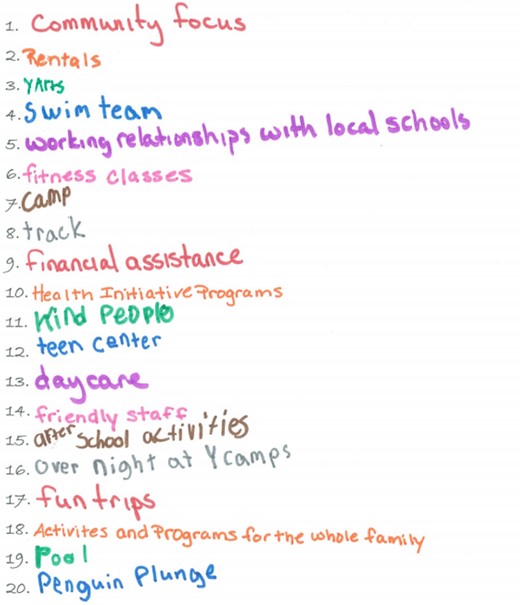 1. Community focus
2. Rentals
3. YArts
4. Swim team
5. working relationships with local schools
6. fitness classes
7. Camp
8. track
9. financial assistance
10. Health Initiative Programs
11. Kind People
12. teen center
13. daycare
14. friendly staff
15. after school activities
16. over night at Y camps
17. fun trips
18. Activites and Programs for the whole family
19. Pool
20. Penguin Plunge